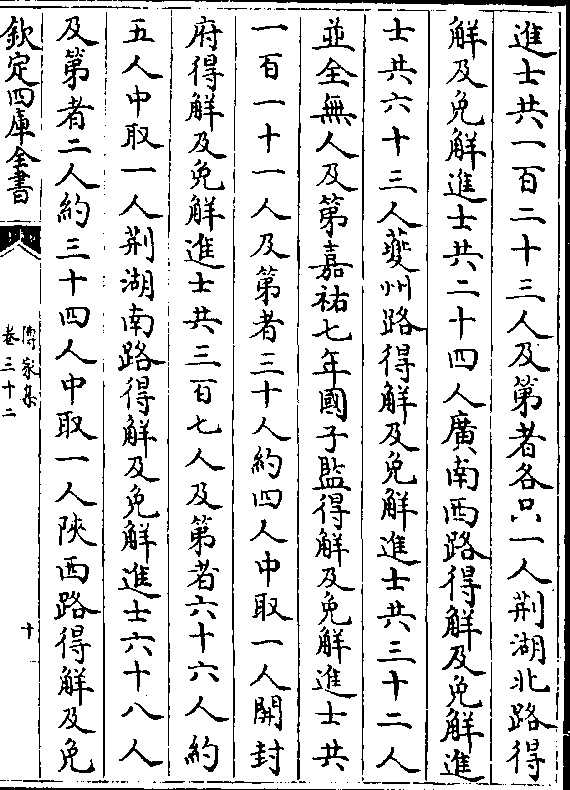 進士共一百二十三人及第者各只一人荆湖北路得
解及免解進士共二十四人廣南西路得解及免解進
士共六十三人夔州路得解及免解進士共三十二人
並全無人及第嘉祐七年國子監得解及免解進士共
一百一十一人及第者三十人約四人中取一人開封
府得解及免解進士共三百七人及第者六十六人約
五人中取一人荆湖南路得解及免解進士六十八人
及第者二人約三十四人中取一人陜西路得解及免
欽定四庫全書
傳家集
卷三十二
十